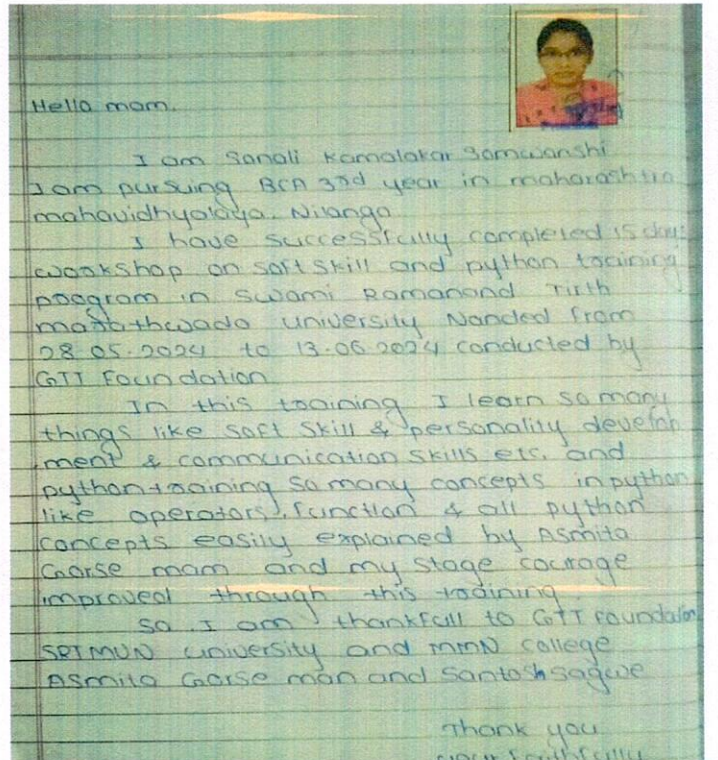 Hello mam.
I am Sonali Kamalakar Somwanshi
I am pursuing BCA 3rd year in maharashtra
mahavidhyalaya. Nilanga
I have successfully completed 15 days
wookshop on soft skill and python tooining
poogram in Swami Ramanand Tirth
marathwada university Nanded from
28.05.2024 to 13.06.2024 conducted by
GTT Foundation
In this tooining I learn so many
things like soft skill & personality develop
ment & communication skills etc. and
python tooining so many concepts in python
like operators, function & all python
concepts easily explained by Asmita
Gorse mam and my stage courage
improved through this tooining
So I am thankfull to GTT Foundation
SRTMUN university and MMN college
Asmita Gorse man and Santosh sagwe
Thank you
your faithfully